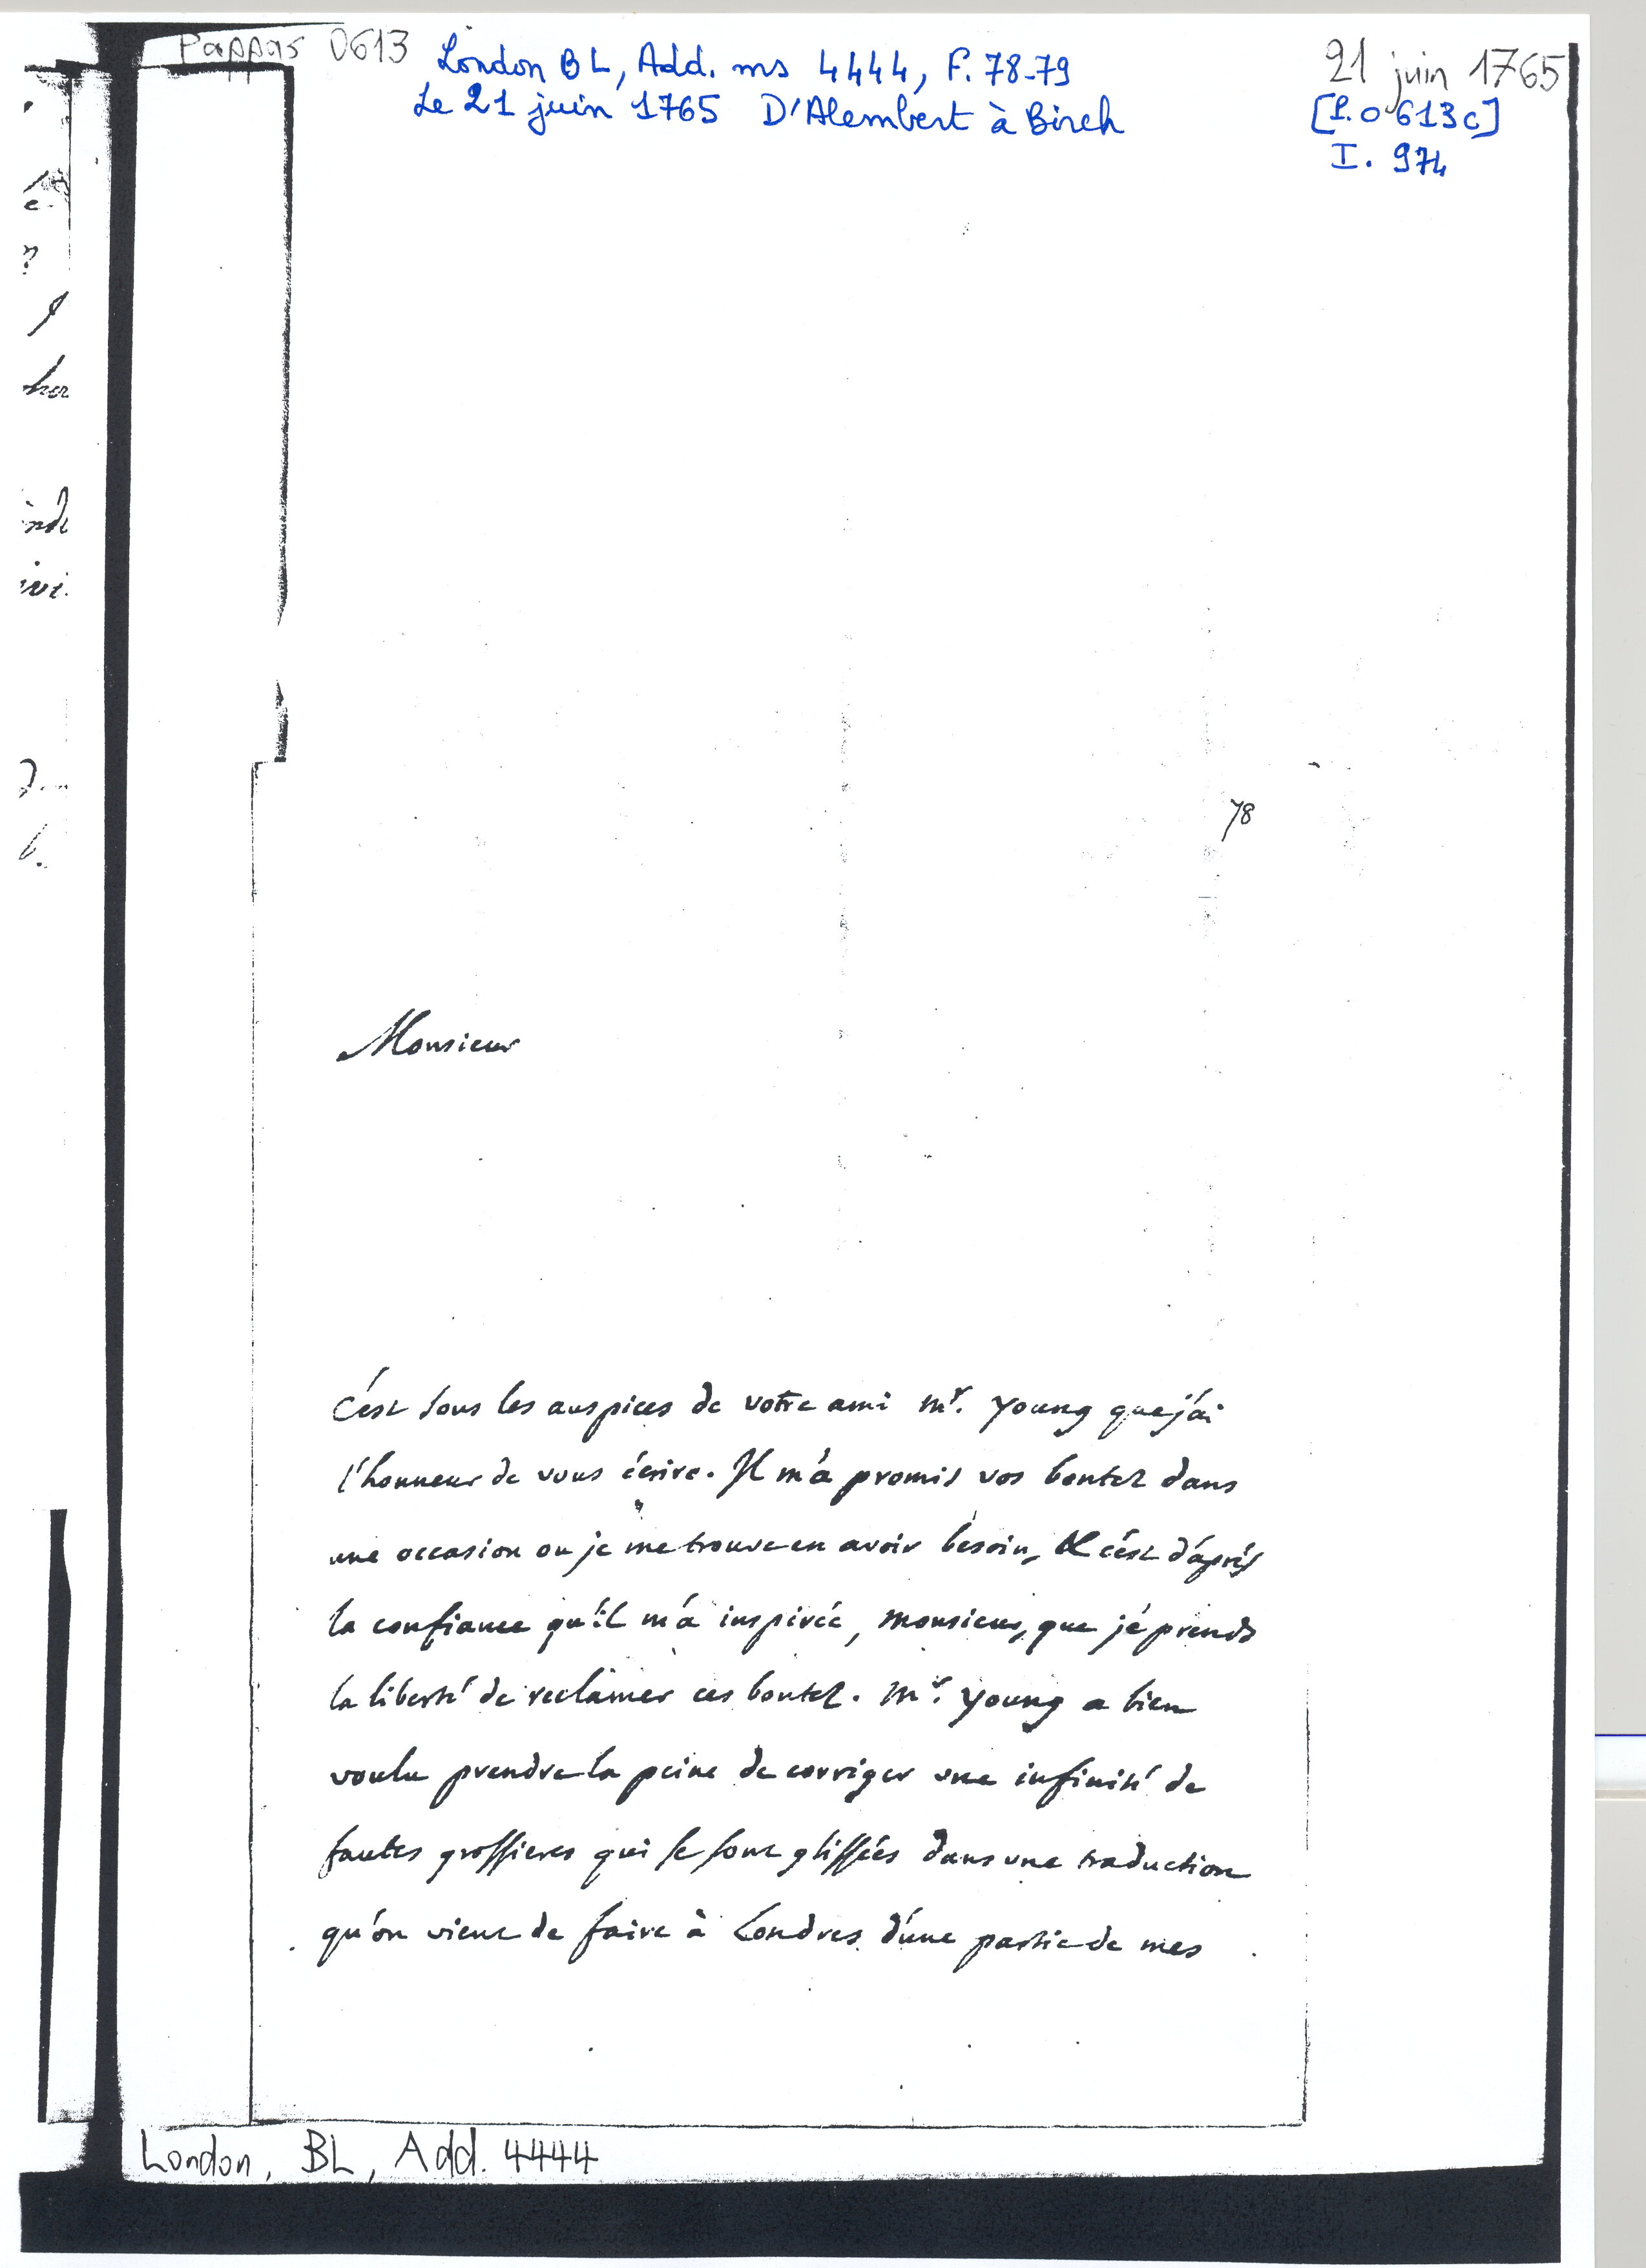 Pappas 0613
London BL, Add. ms 4444, F. 78-79
Le 21 juin 1765 D'Alembert à Birch
21 juin 1765
[P.0613c]
I. 974
78
Monsieur
c'est sous les auspices de votre ami Mr. young que j'ai
l'honneur de vous écrire. Il m'a promis vos bontez dans
une occasion ou je me trouve en avoir besoin, & c'est d'après
la confiance qu'il m'a inspirée, monsieur, que je prends
la liberté de reclamer ces bontez. Mr. young a bien
voulu prendre la peine de corriger une infinité de
fautes grossieres qui se sont glissées dans une traduction
qu'on vient de faire à Londres d'une partie de mes
London, BL, Add. 4444